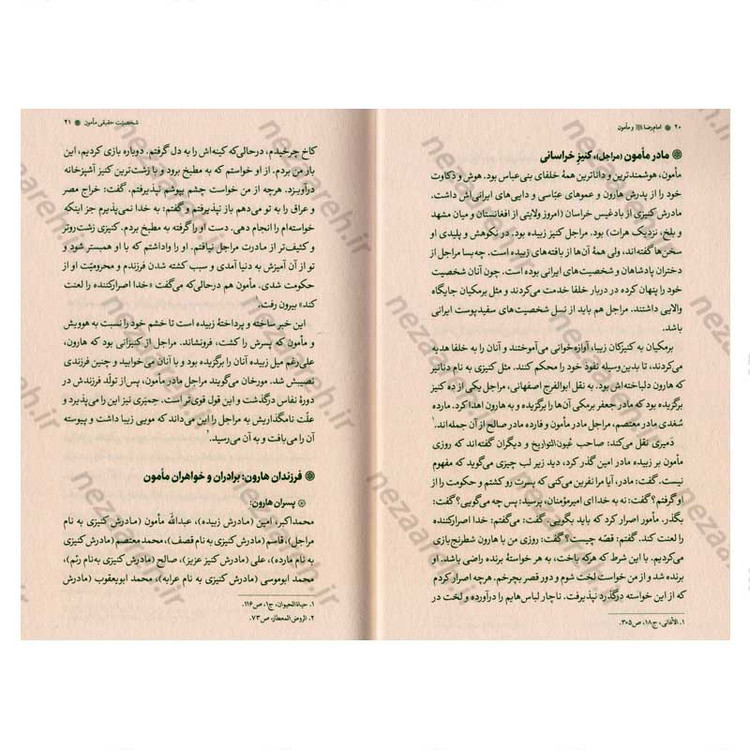 ۲۰ امام رضا و مأمون
مادر مأمون (مراجل)، کنیز خراسانی
مأمون، هوشمندترین و داناترین همهٔ خلفای بنی‌عباس بود. هوش و ذکاوت
خود را از پدرش هارون و عموهای عبّاسی و دایی‌های ایرانی‌اش داشت.
مادرش کنیزی از بادغیس خراسان (امروز ولایتی از افغانستان و میان مشهد
و بلخ، نزدیک هرات) بود. مراجل کنیز زبیده بود. در نکوهش و پلیدی او
سخن‌ها گفته‌اند، ولی همهٔ آن‌ها از بافته‌های زبیده است. چه‌بسا مراجل از
دختران پادشاهان و شخصیت‌های ایرانی بوده است، چون آنان شخصیت
خود را پنهان کرده در دربار خلفا خدمت می‌کردند و مثل برمکیان جایگاه
والایی داشتند. مراجل هم باید از نسل شخصیت‌های سفیدپوست ایرانی
باشد.
برمکیان به کنیزکان زیبا، آوازه‌خوانی می‌آموختند و آنان را به خلفا هدیه
می‌کردند، تا بدین‌وسیله نفوذ خود را محکم کنند. مثل کنیزی به نام دنانیر
که هارون دلباخته‌اش بود. به نقل ابوالفرج اصفهانی، مراجل یکی از ده کنیز
برگزیده بود که مادر جعفر برمکی آن‌ها را برگزیده و به هارون اهدا کرد. مارده
سُغدی مادر معتصم، مراجل مادر مأمون و فارده مادر صالح از آن جمله‌اند.۱
دَمیری نقل می‌کند: صاحب عُیون‌التّواریخ و دیگران گفته‌اند که روزی
مأمون بر زبیده مادر امین گذر کرد، دید زیر لب چیزی می‌گوید که مفهوم
نیست. گفت: مادر، آیا مرا نفرین می‌کنی که پسرت رو کشتم و حکومت را از
او گرفتم؟ گفت: نه به خدا ای امیرمؤمنان. پرسید: پس چه می‌گویی؟ گفت:
بگذر. مأمون اصرار کرد که باید بگویی. گفت: می‌گفتم: خدا اصرارکننده
را لعنت کند. گفتم: قصّه چیست؟ گفت: روزی من با هارون شطرنج‌بازی
می‌کردیم. با این شرط که هرکه باخت، به هر خواستهٔ برنده راضی باشد. او
برنده شد و از من خواست لخت شوم و دور قصر بچرخم. هرچه اصرار کردم
که از این خواسته درگذرد نپذیرفت. ناچار لباس‌هایم را درآورده و لخت در
۱. الأغانی، ج۱۸، ص۳۰۵.
شخصیّت حقیقی مأمون ۲۱
کاخ چرخیدم، درحالی‌که کینه‌اش را به دل گرفتم. دوباره بازی کردیم، این
بار من بردم. از او خواستم که به مطبخ برود و با زشت‌ترین کنیز آشپزخانه
درآویزد. هرچه از من خواست چشم بپوشم نپذیرفتم. گفت: خراج مصر
و عراق را به تو می‌دهم باز نپذیرفتم و گفتم: به خدا نمی‌پذیرم جز اینکه
خواسته‌ام را انجام دهی. دست او را گرفته به مطبخ بردم. کنیزی زشت‌روتر
و کثیف‌تر از مادرت مراجل نیافتم. او را واداشتم که با او همبستر شود و
تو از آن آمیزش به دنیا آمدی و سبب کشته شدن فرزندم و محرومیّت او از
حکومت شدی. مأمون هم درحالی‌که می‌گفت «خدا اصرارکننده را لعنت
کند» بیرون رفت.۱
این خبر ساخته و پرداختهٔ زبیده است تا خشم خود را نسبت به هوویش
و مأمون که پسرش را کشت، فرونشاند. مراجل از کنیزانی بود که هارون،
علی‌رغم میل زبیده آنان را برگزیده بود و با آنان می‌خوابید و چنین فرزندی
نصیبش شد. مورخان می‌گویند مراجل مادر مأمون، پس از تولّد فرزندش در
دورهٔ نفاس درگذشت و این قول قوی‌تر است. حِمیَری نیز این را می‌پذیرد و
علّت نامگذاریش به مراجل را این می‌داند که مویی زیبا داشت و پیوسته
آن را می‌بافت و به آن می‌رسید.۲
فرزندان هارون: برادران و خواهران مأمون
پسران هارون:
محمداکبر، امین (مـادرش زبیده)، عبدالله مأمون (مـادرش کنیزی به نام
مراجل)، قاسم (مـادرش کنیزی به نام قصف)، محمد معتصم (مادرش کنیزی
به نام مارده)، علی (مادرش کنیز عزیز)، صالح (مادرش کنیزی به‌نام رثم)،
محمد ابوموسی (مادرش کنیزی به نام عرابه)، محمد ابویعقوب (مادرش
۱. حیاةالحیوان، ج۱، ص۱۱۶.
۲. الروض‌المعطار، ص۷۳.
nezaareh.ir